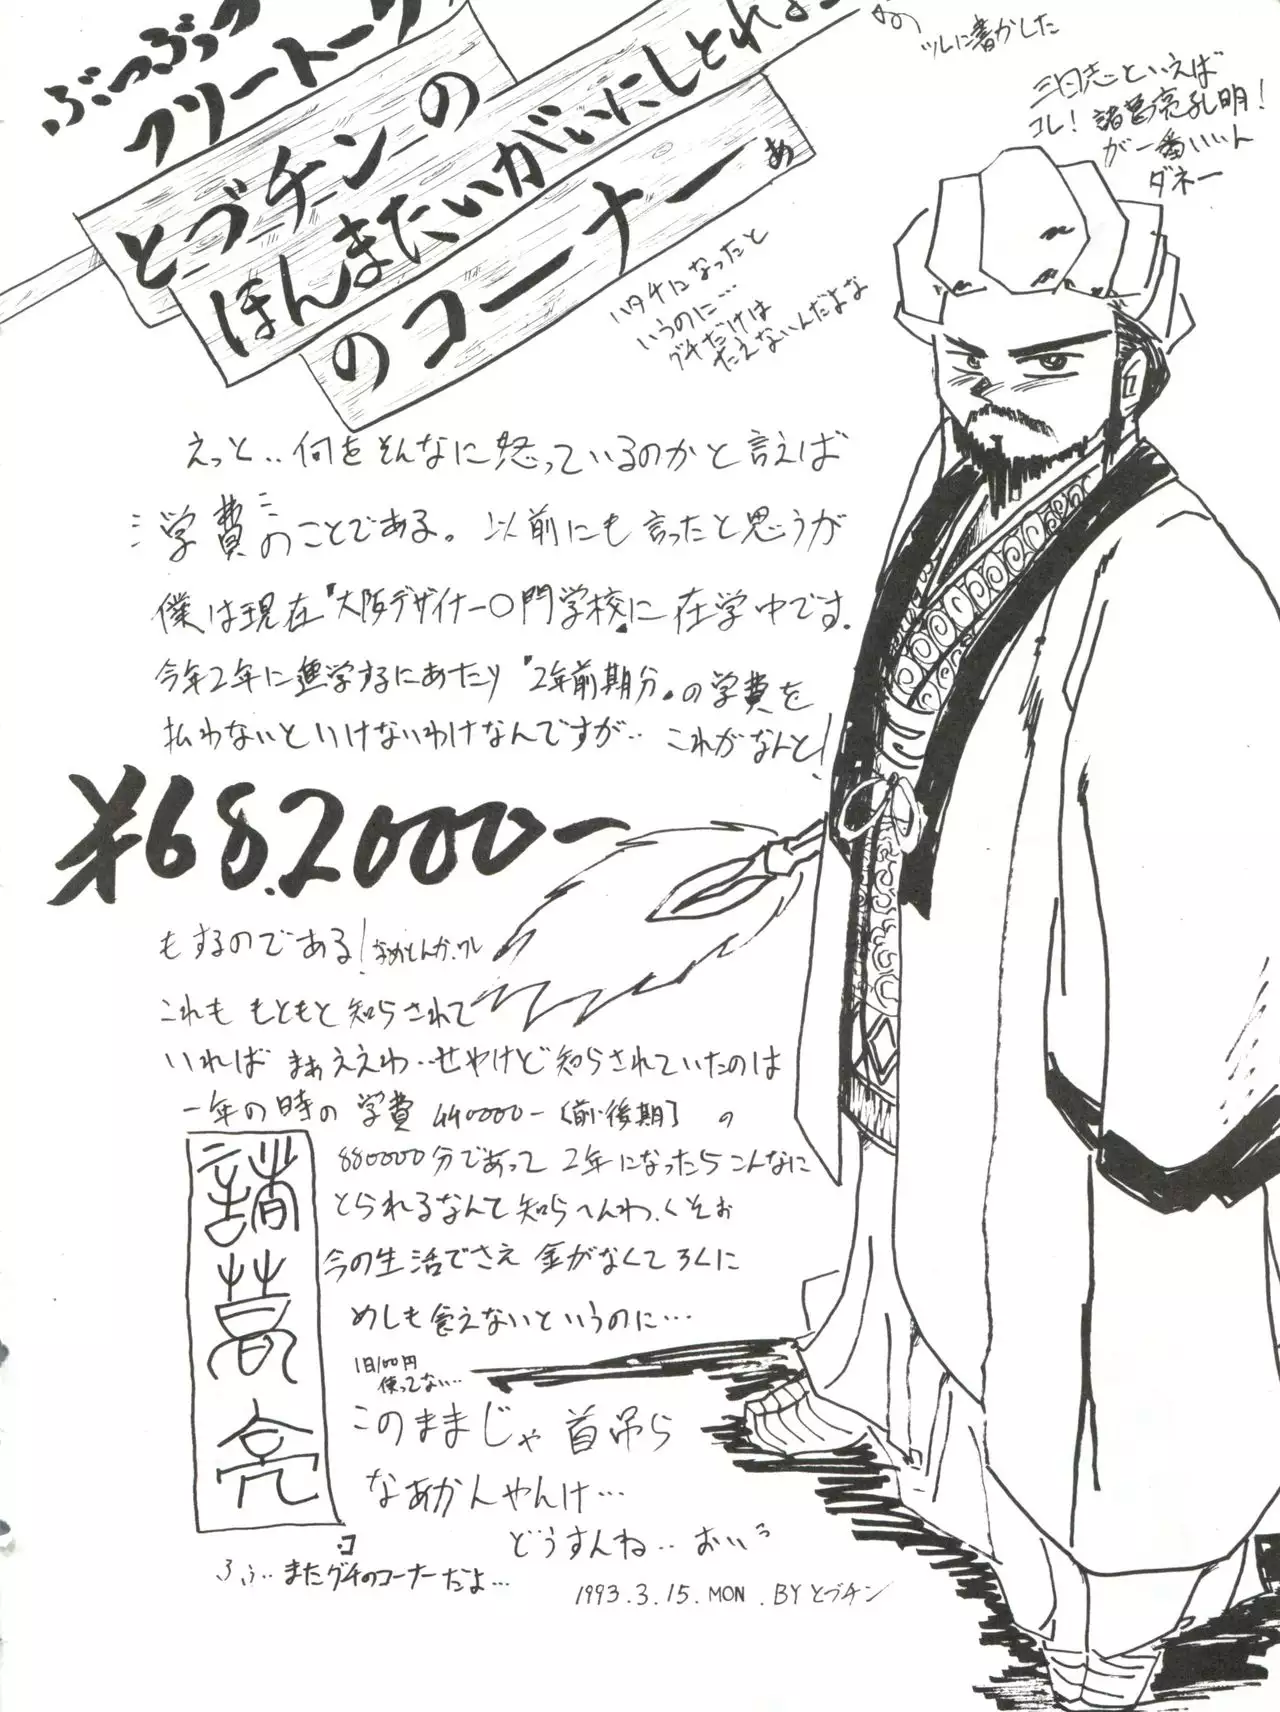 ぶつぶつ
フリートーク
とブチンの
ほんまたいがいにしとれよー
のコーナーぁ
ツルに書かした
三国志といえば
コレ！諸葛亮孔明！
が一番いいん
ダネー
ハタチになったと
いうのに…
グチだけは
たえないんだよな
えっと‥何をそんなに怒っているのかと言えば
学費のことである。以前にも言ったと思うが
僕は現在『大阪デザイナー〇門学校』に在学中です。
今年2年に進学するにあたり『2年前期分』の学費を
払わないといけないわけなんですが‥これがなんと！
¥682000-
もするのである！なめとんか、ワレ
これももともと知らされて
いれば まぁええわ‥せやけど知らされていたのは
一年の時の学費 440000-〔前・後期〕の
880000分であって 2年になったらこんなに
とられるなんて知らへんわ、くそぉ
今の生活でさえ金がなくてろくに
めしも食えないというのに…
1日100円
使ってない…
このままじゃ首吊ら
なあかんやんけ…
どうすんね‥おいっ
諸葛亮
ふぅ‥またグチのコーナーだよ…
コ
1993.3.15.MON.BYとブチン